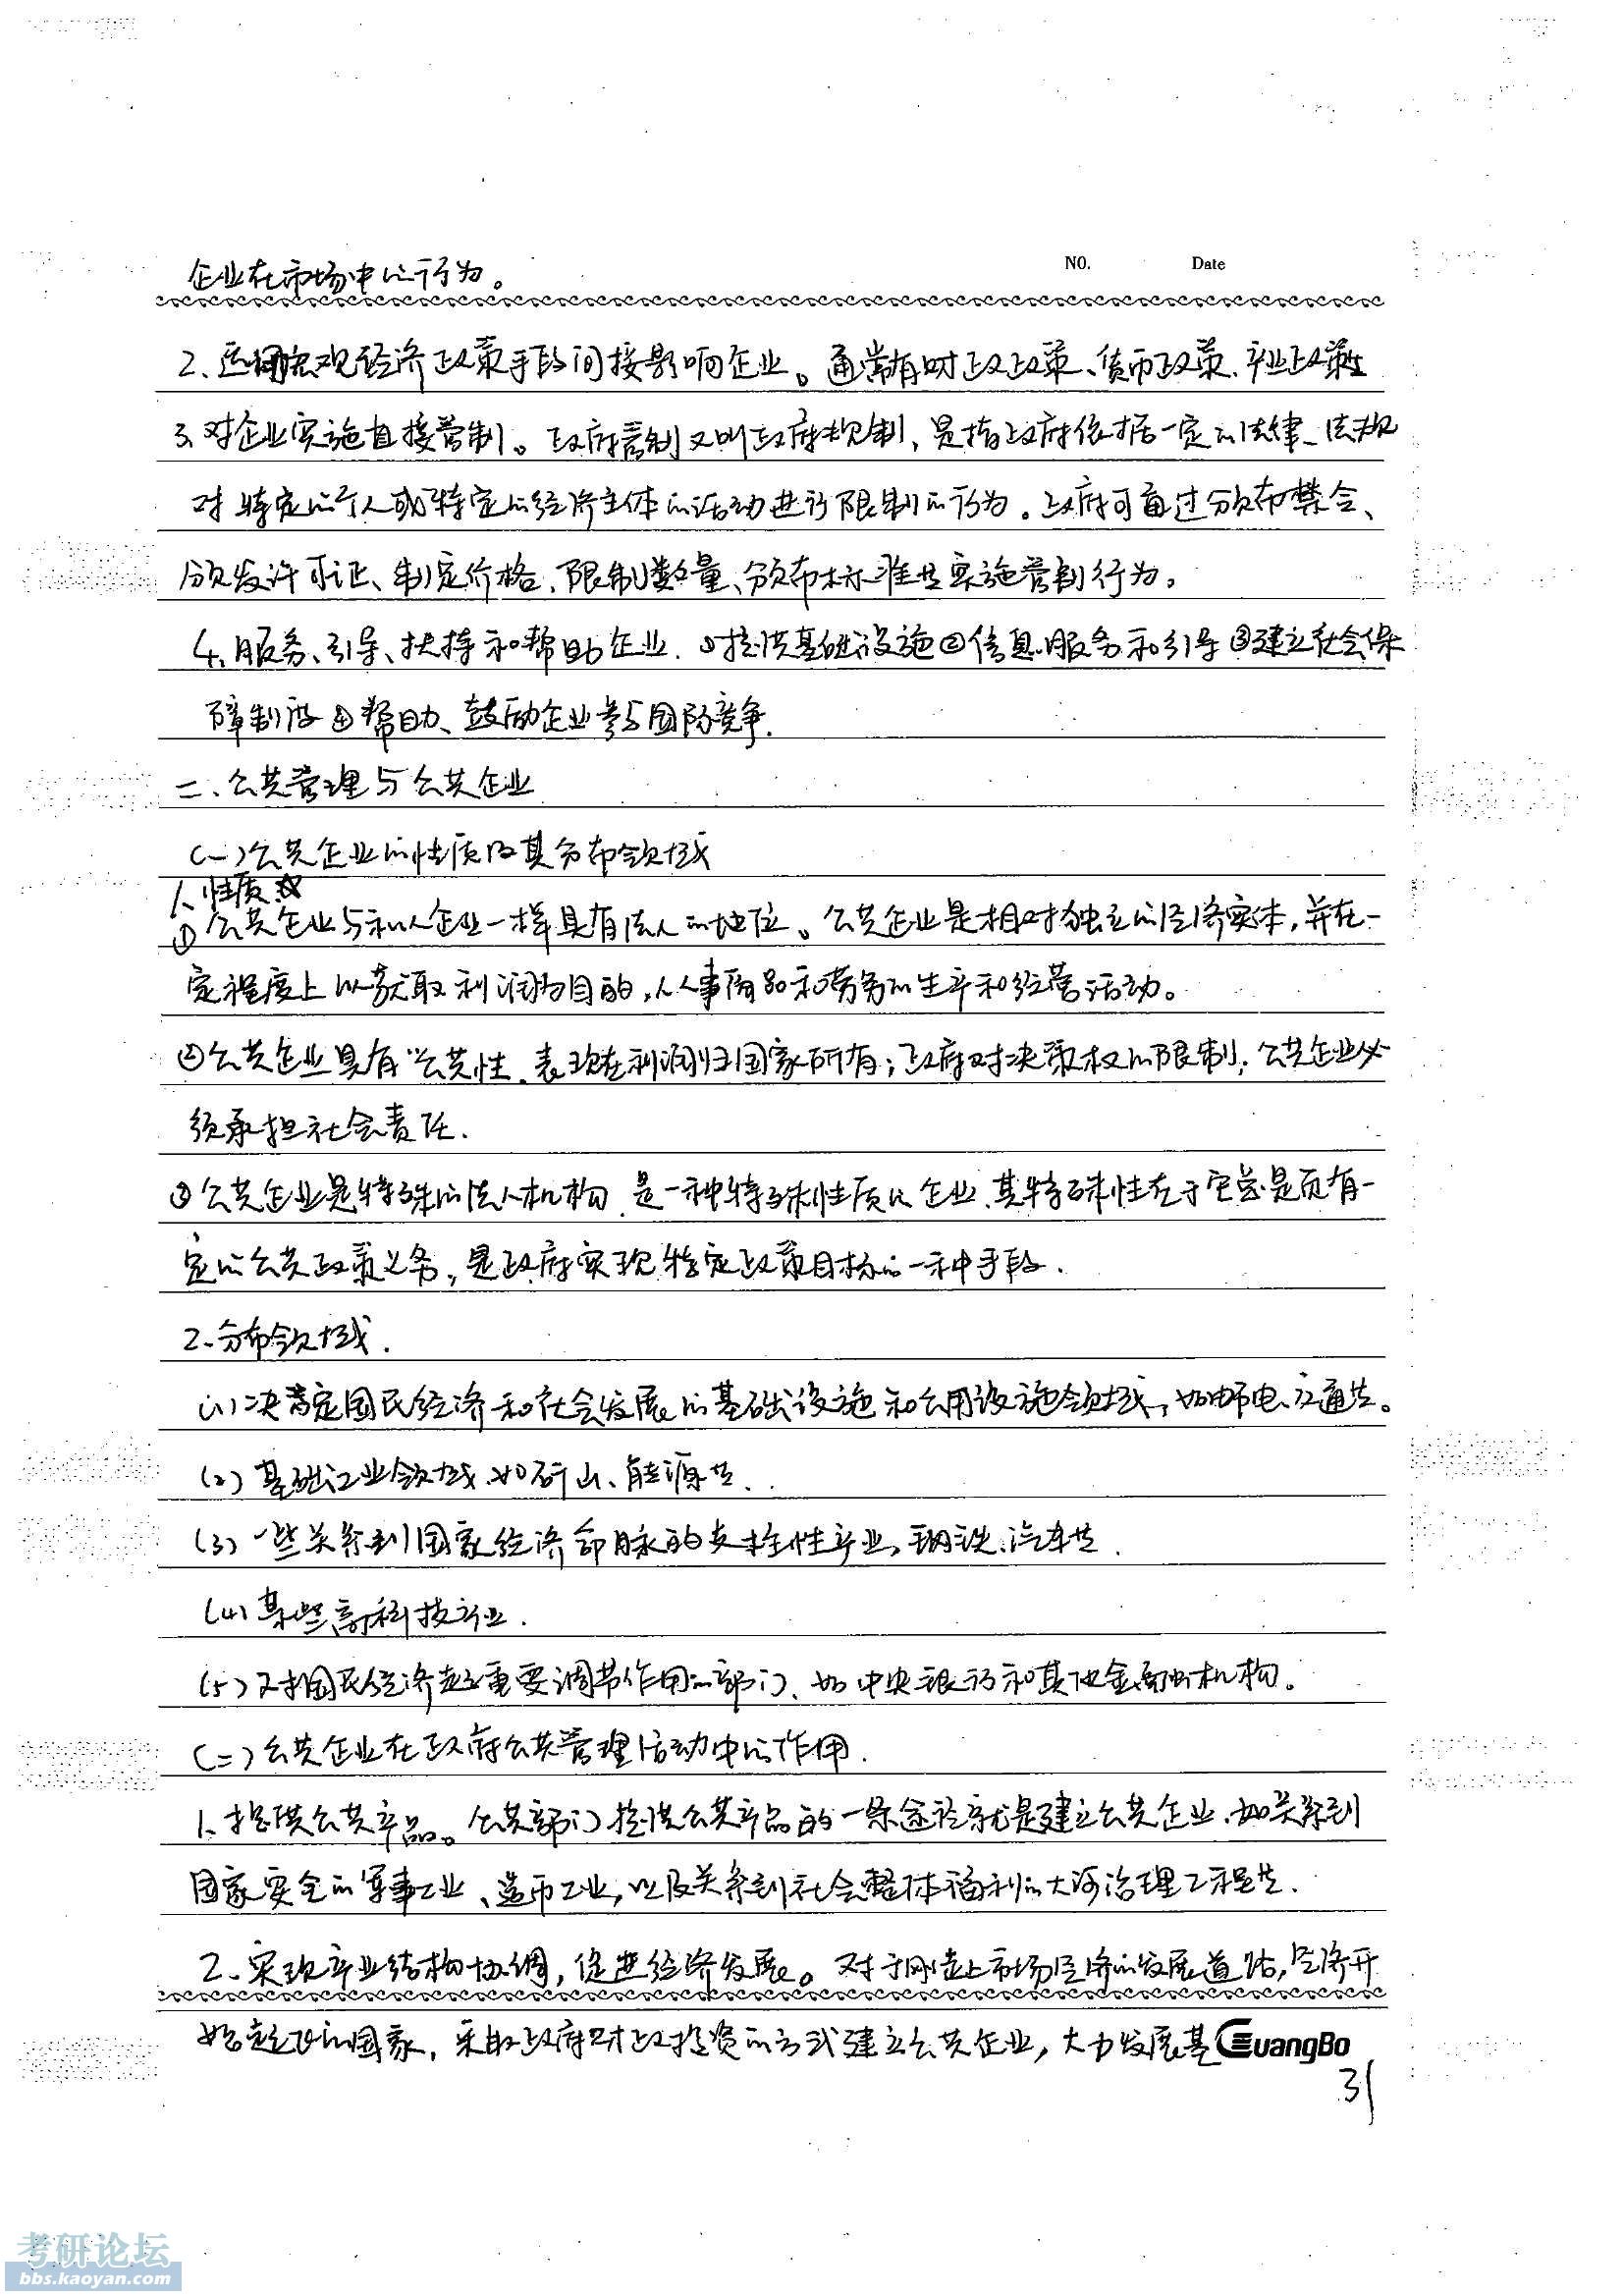 NO. Date
企业在市场中的行为。
2、运用宏观经济政策手段间接影响企业。通常有财政政策、货币政策、产业政策等
3、对企业实施直接管制。政府管制又叫政府规制，是指政府依据一定的法律、法规
对特定的个人或特定的经济主体的活动进行限制的行为。政府可通过颁布禁令、
颁发许可证、制定价格、限制数量、颁布标准等实施管制行为。
4、服务、引导、扶持和帮助企业．①提供基础设施②信息服务和引导③建立社会保
障制度④帮助、鼓励企业参与国际竞争．
二、公共管理与公共企业
(一)公共企业的性质及其分布领域
1、性质
①公共企业与私人企业一样具有法人的地位。公共企业是相对独立的经济实体，并在一
定程度上以获取利润为目的，从事商品和劳务的生产和经营活动。
②公共企业具有"公共性．表现在利润归国家所有；政府对决策权的限制；公共企业必
须承担社会责任．
③公共企业是特殊的法人机构．是一种特殊性质的企业．其特殊性在于它总是负有一
定的公共政策义务，是政府实现特定政策目标的一种手段．
2、分布领域．
(1)决定国民经济和社会发展的基础设施和公用设施领域，如邮电、交通等。
(2)基础工业领域．如矿山、能源等．
(3)一些关系到国家经济命脉的支柱性产业，钢铁、汽车等．
(4)某些高科技行业．
(5)对国民经济起重要调节作用的部门、如中央银行和其他金融机构。
(二)公共企业在政府公共管理活动中的作用．
1、提供公共产品。公共部门提供公共产品的一条途径就是建立公共企业．如关系到
国家安全的军事工业、造币工业，以及关系到社会整体福利的大河治理工程等．
2、实现产业结构协调，促进经济发展。对于刚走上市场经济的发展道路，经济开
始起飞的国家，采取政府财政投资的方式建立公共企业，大力发展基
GuangBo
31
考研论坛
bbs.kaoyan.com